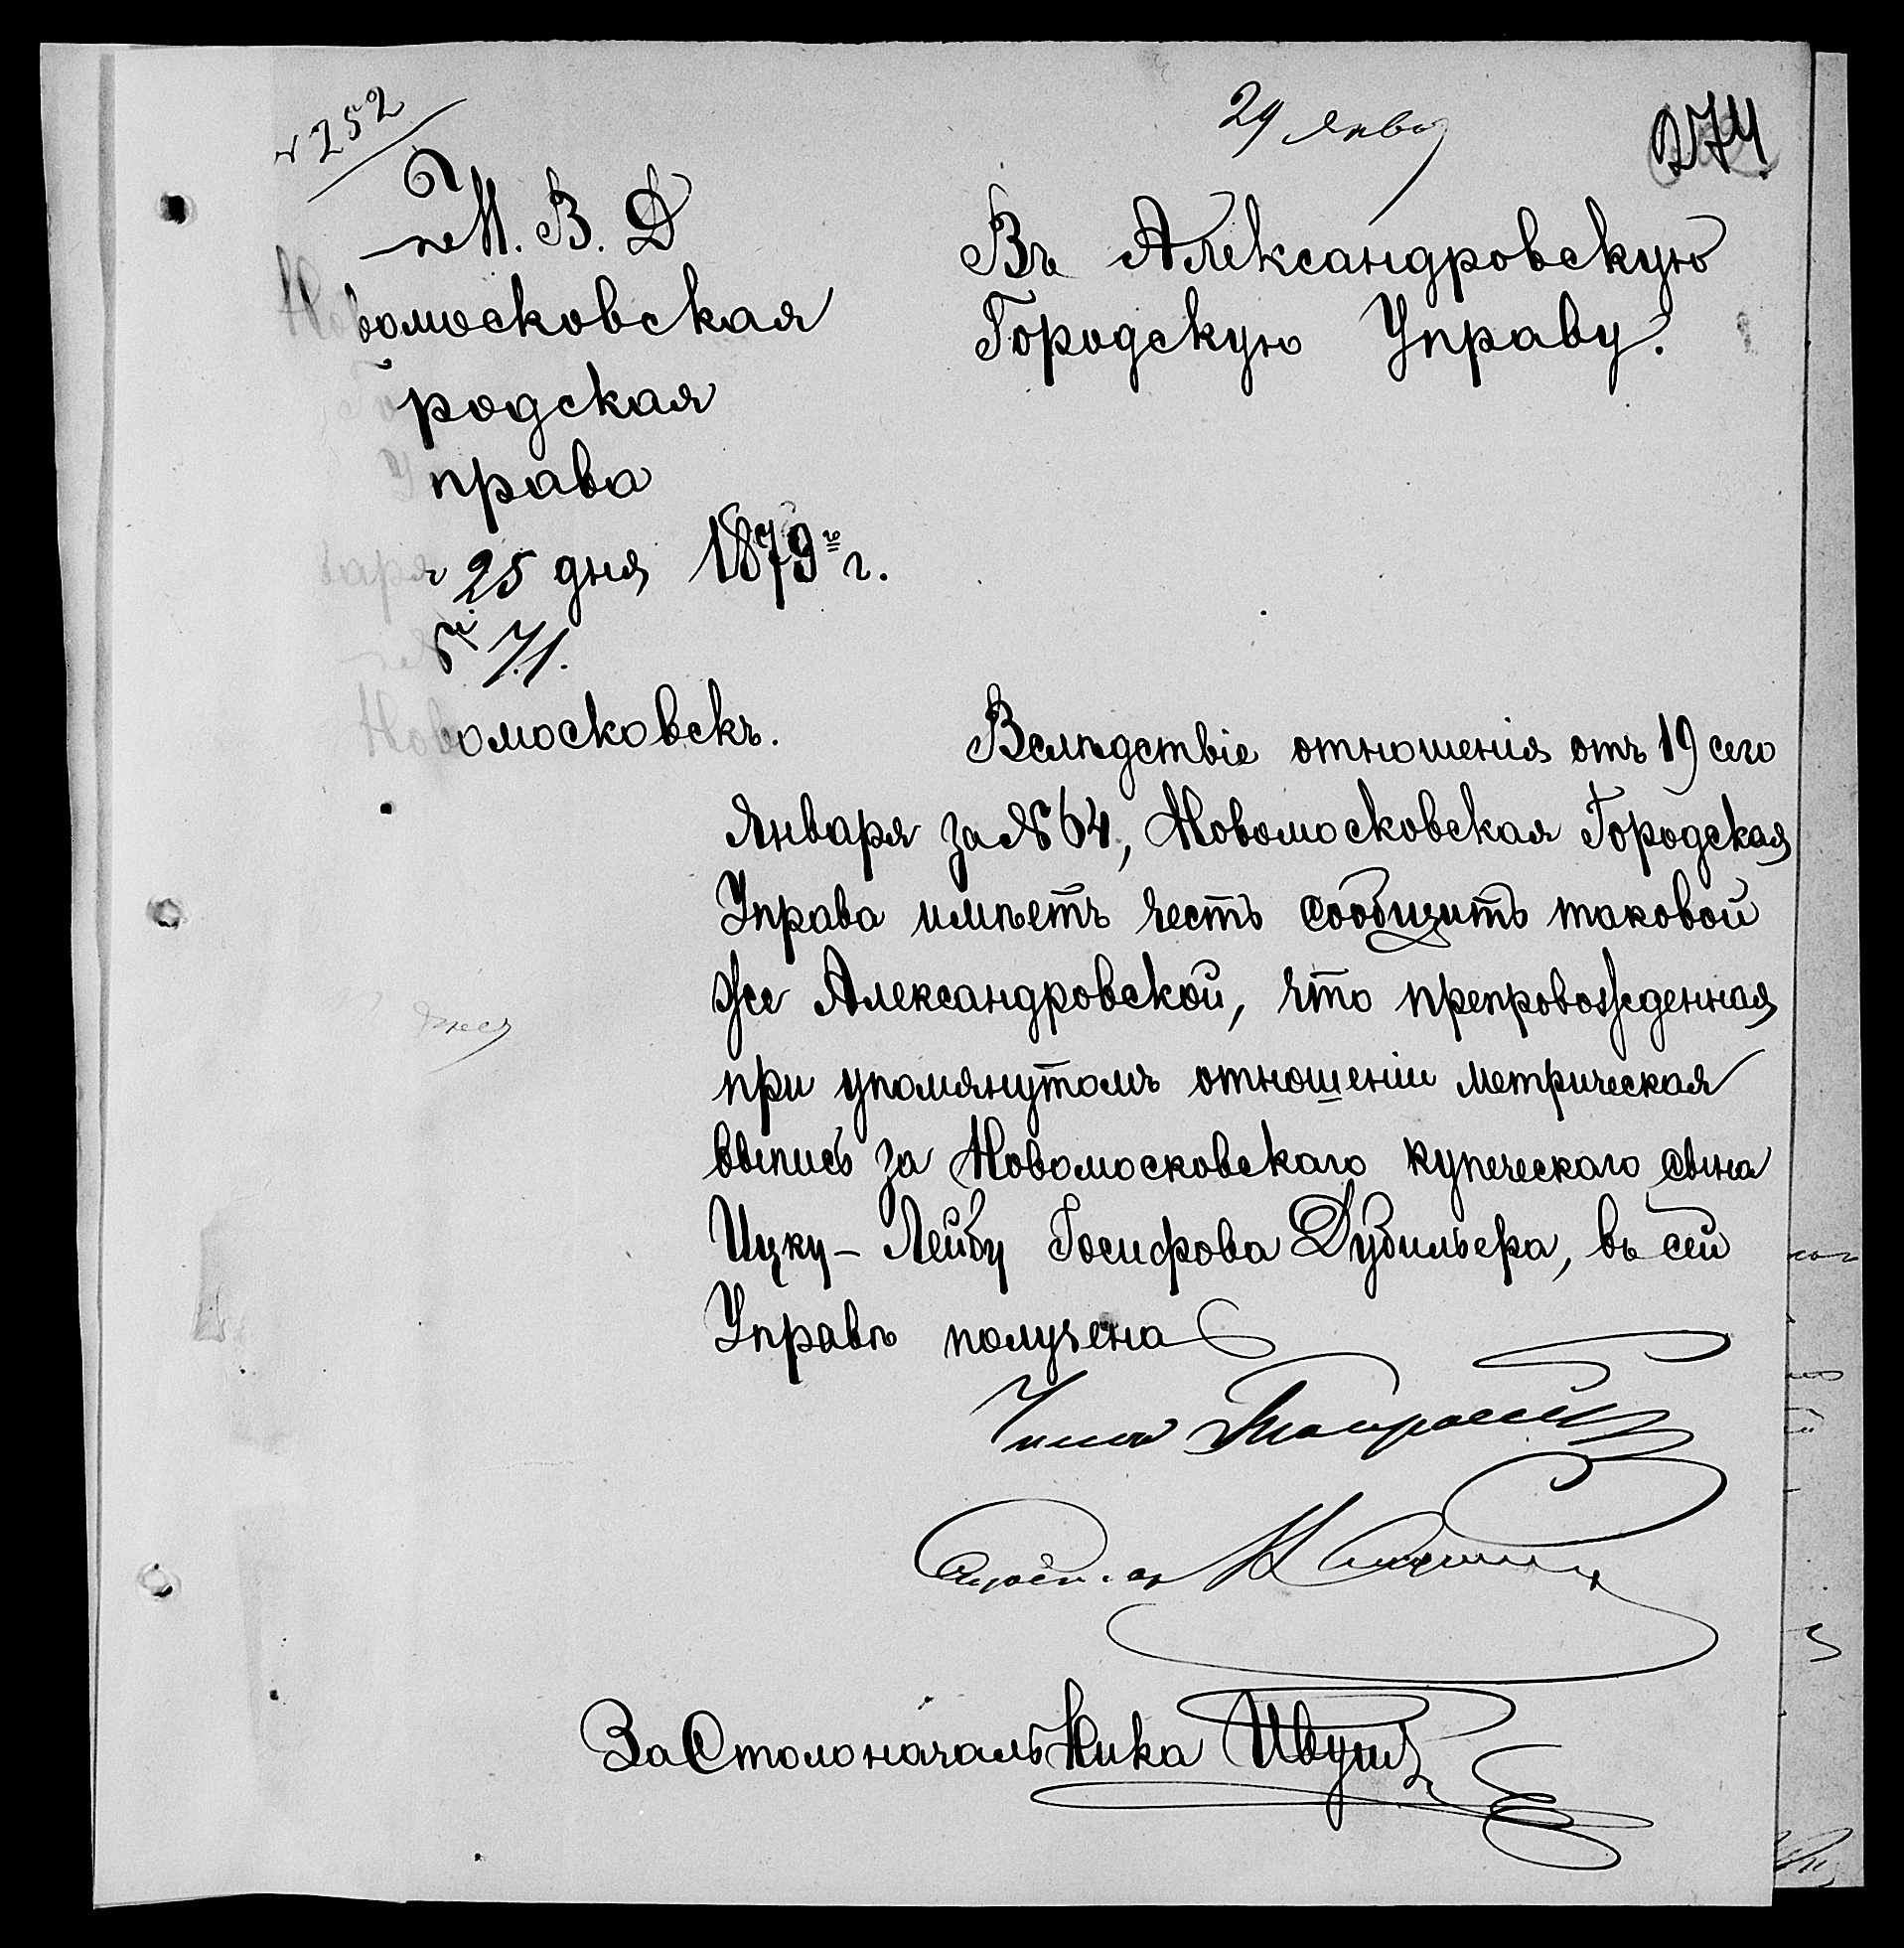 № 252
29 Янво
274
М. В. Д
Новомосковская
Городская
Управа
Января 25 дня 1879 г.
№ 71.
Новомосковскъ.
Въ Александровскую
Городскую Управу.
Вслѣдствіе отношенія отъ 19 сего
Января за № 64, Новомосковская Городская
Управа имѣетъ честь сообщить таковой
же Александровской, что препровожденная
при упомянутомъ отношеніи метрическая
выпись за Новомосковскаго купеческаго сына
Ицку-Лейбу Іосифова Дубильера, въ сей
Управѣ получена
Членъ
Секретарь
За Столоначальника